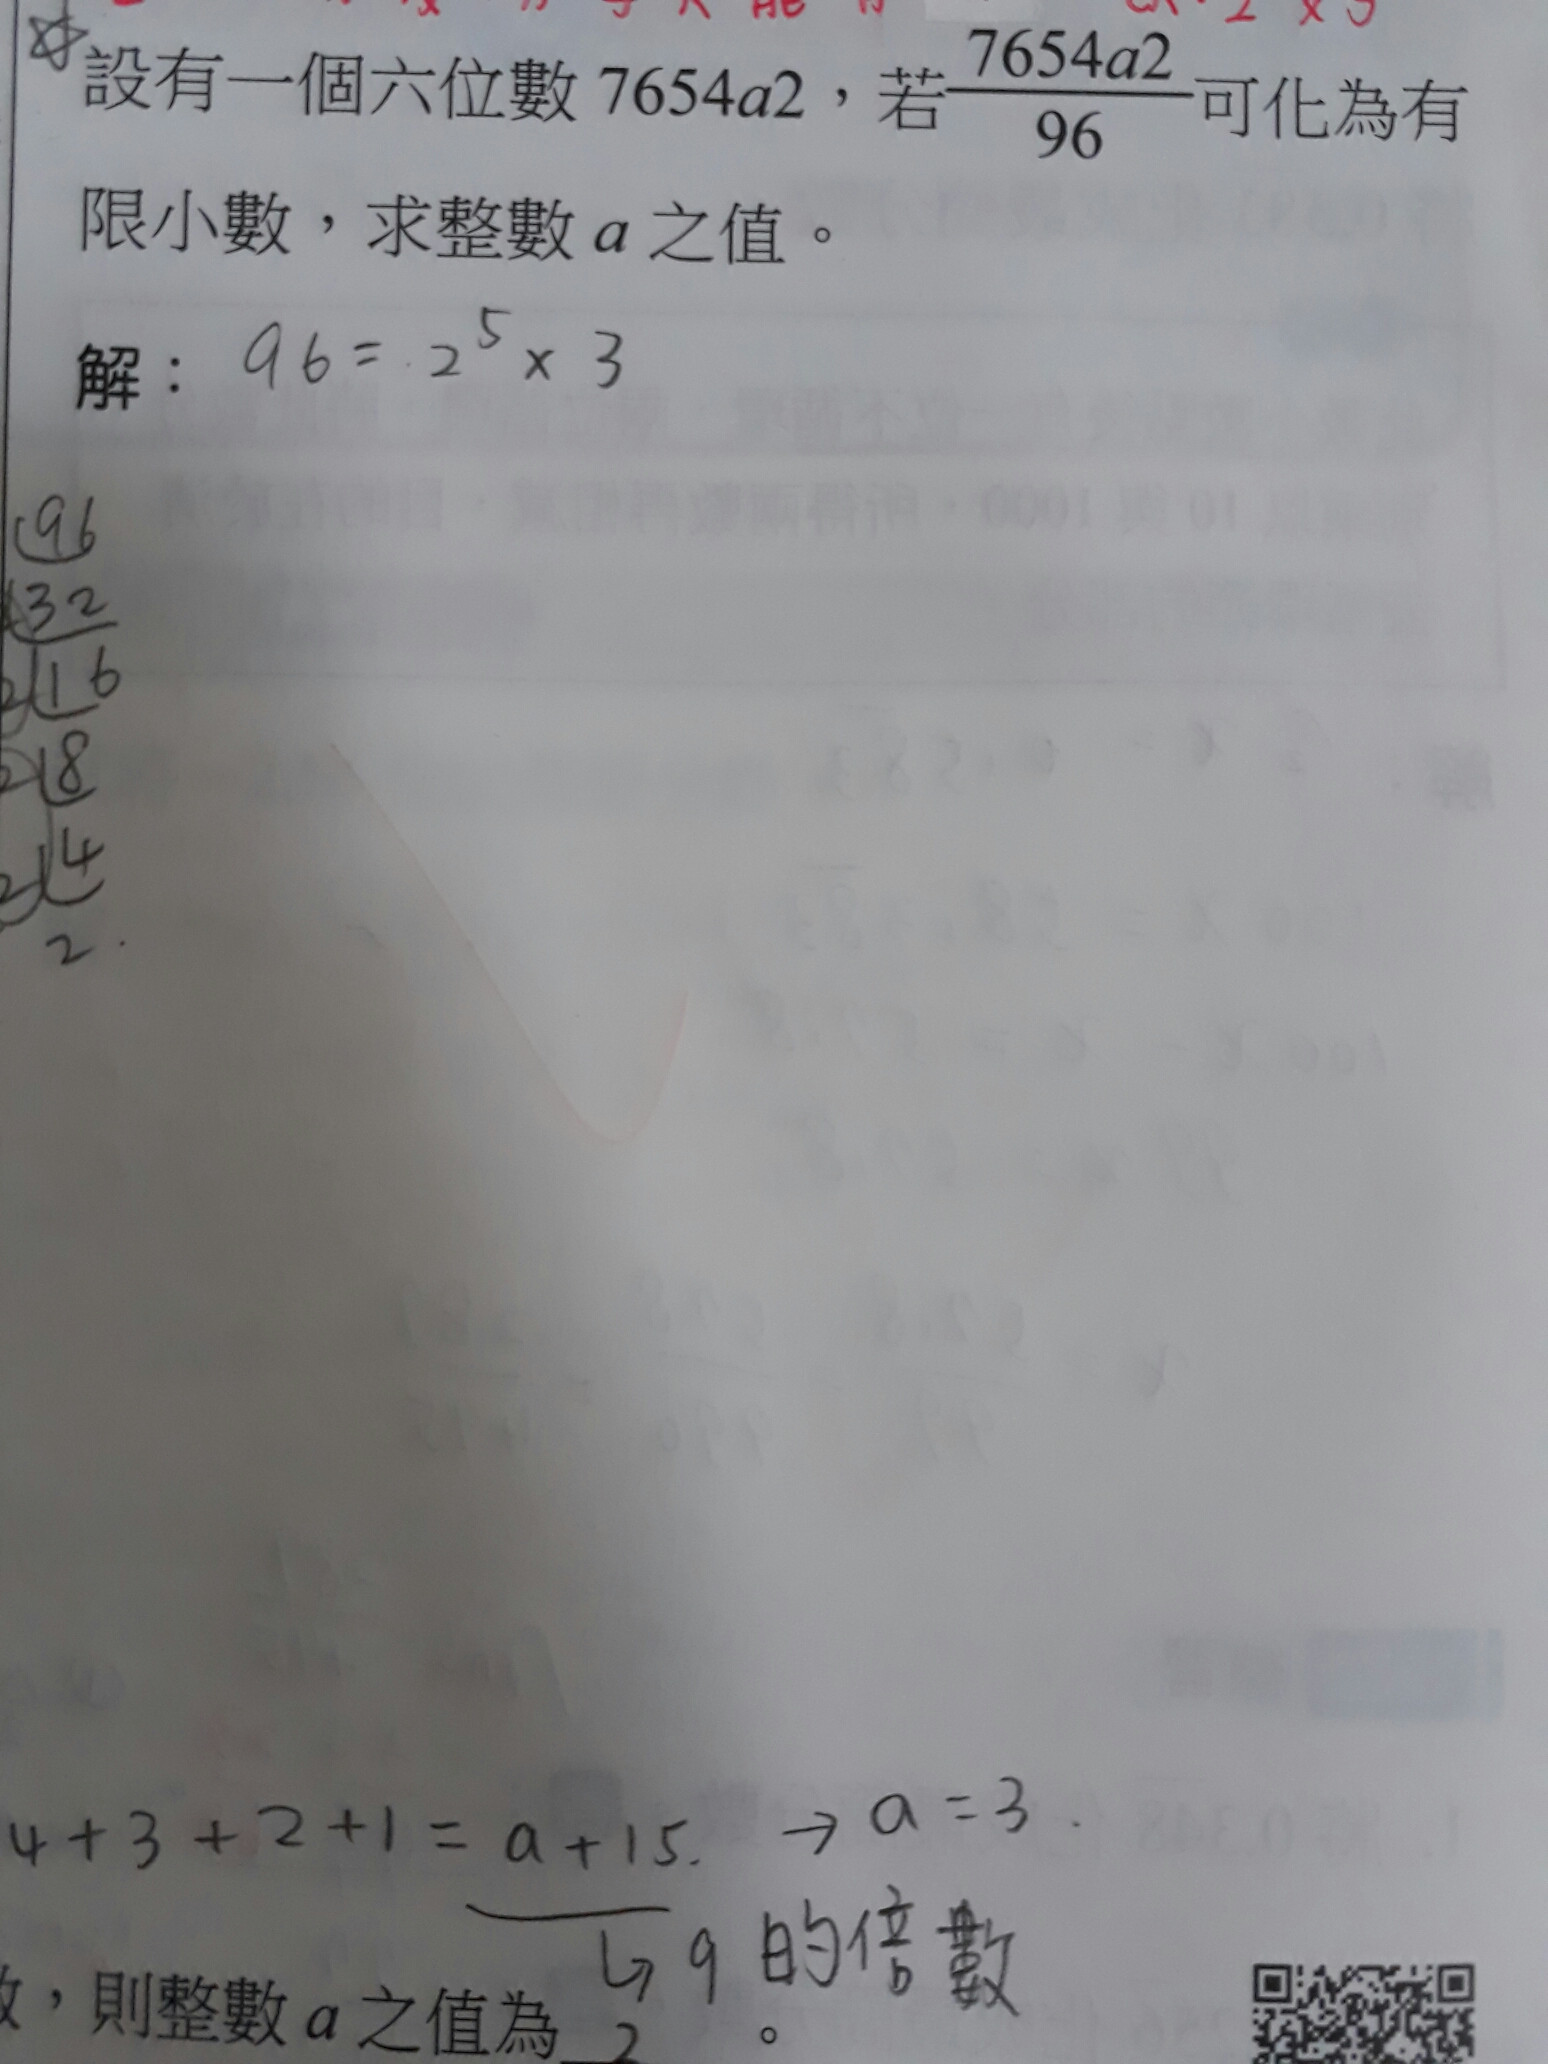 設有一個六位數 7654a2，若 7654a2/96 可化為有
限小數，求整數 a 之值。
解： 96 = 2⁵ × 3
96
32
2 16
2 8
2 4
2
4 + 3 + 2 + 1 = a + 15. → a = 3.
↳ 9 的倍數
，則整數 a 之值為 。